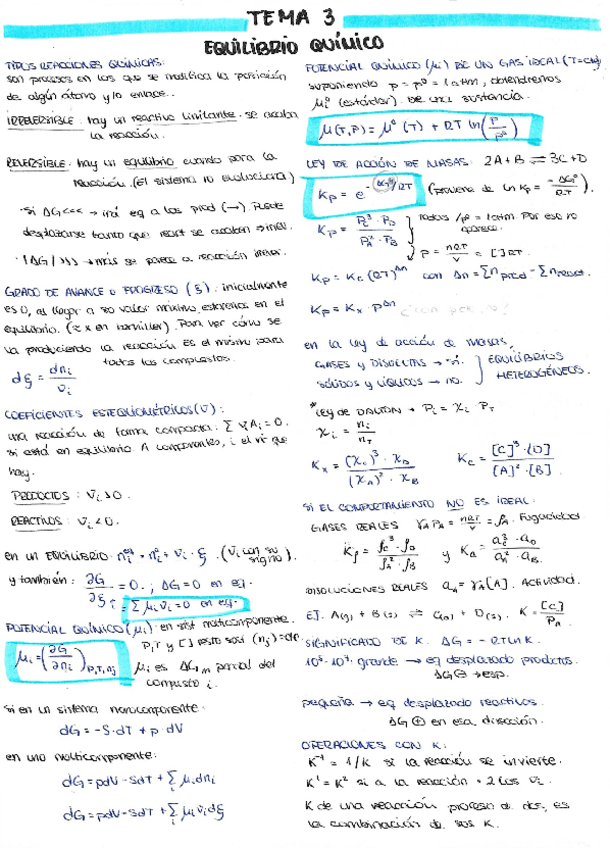 TEMA 3
EQUILIBRIO QUÍMICO
TIPOS REACCIONES QUÍMICAS:
son procesos en los que se modifica la posición
de algún átomo y/o enlace..
IRREVERSIBLE: hay un reactivo limitante. se acaba
la reacción.
REVERSIBLE: hay un equilibrio cuando para la
reacción. (El sistema no evoluciona)
· si ΔG<<< → irá eq a los prod (→). Puede
desplazarse tanto que react se acaban → irrev.
· |ΔG| >>> → más se parece a reacción irrev.
GRADO DE AVANCE o PROGRESO (ξ): inicialmente
es 0, al llegar a su valor máximo estaremos en el
equilibrio. (≈ x en bachiller). Para ver cómo se
va produciendo la reacción es el mismo para
todos los compuestos.
dξ = dni / νi
COEFICIENTES ESTEQUIOMÉTRICOS (ν):
una reacción de forma compacta: Σ νi Ai = 0.
si está en equilibrio A componentes, i el nº que
hay.
PRODUCTOS: νi > 0.
REACTIVOS: νi < 0.
en un EQUILIBRIO: ni^eq = ni^o + νi · ξ. (νi con su signo).
y también: ∂G/∂ξ = 0. ; ΔG = 0 en eq.
Σ μi νi = 0 en eq.
POTENCIAL QUÍMICO (μi) en sist multicomponente.
P, T y [ ] resto sust (nj) = cte.
μi = (∂G/∂ni) P,T,nj
μi es ΔGm parcial del
compuesto i.
si en un sistema monocomponente:
dG = -S·dT + p·dV
en uno multicomponente:
dG = pdV - SdT + Σi μi dni
dG = pdV - SdT + Σi μi νi dξ
POTENCIAL QUÍMICO (μi) DE UN GAS IDEAL (T=cte)
suponiendo p = p⁰ = 1 atm, obtendremos
μi⁰ (estándar) de una sustancia.
μ(T,P) = μ⁰(T) + RT ln(P/P⁰)
LEY DE ACCIÓN DE MASAS: 2A+B ⇌ 3C+D
Kp = e^(-ΔG⁰/RT) (proviene de Ln Kp = -ΔG⁰/RT).
Kp = Pc³·PD / PA²·PB
todas /p⁰ = 1 atm. Por eso no
aparece.
P = nRT/V = [ ]RT
Kp = Kc (RT)^Δn con Δn = Σn prod - Σn react.
Kp = Kx · P^Δn
en la ley de acción de masas,
GASES y DISOLUTOS → sí.
SÓLIDOS y LÍQUIDOS → no.
EQUILIBRIOS
HETEROGÉNEOS.
*Ley de DALTON → Pi = χi · PT
χi = ni / nT
Kx = (χc)³ · χD / (χA)² · χB
Kc = [C]³·[D] / [A]²·[B]
SI EL COMPORTAMIENTO NO ES IDEAL:
GASES REALES γA PA = nRT/V = fA. Fugacidad
Kf = fc³·fD / fA²·fB y Ka = ac³·aD / aA²·aB
DISOLUCIONES REALES aA = γA[A]. Actividad.
EJ. A(g) + B(s) ⇌ C(a) + D(s). K = [C] / PA
SIGNIFICADO DE K. ΔG = -RT ln K.
10³·10³. grande → eq desplazado productos.
ΔG⊖ → esp.
pequeña → eq desplazado reactivos.
ΔG⊕ en esa dirección.
OPERACIONES CON K:
K⁻¹ = 1/K si la reacción se invierte.
K' = K² si a la reacción · 2 los νi.
K de una reacción proceso de dos, es
la combinación de sus K.